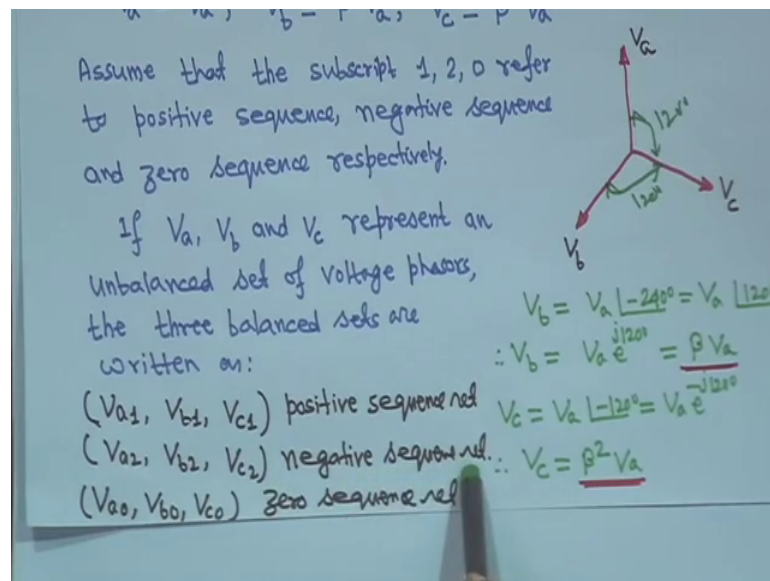 Va, Vb = β Va, Vc = β Va
Assume that the subscript 1, 2, 0 refer
to positive sequence, negative sequence
and zero sequence respectively.
If Va, Vb and Vc represent an
unbalanced set of voltage phasors,
the three balanced sets are
written as:
(Va1, Vb1, Vc1) positive sequence set
(Va2, Vb2, Vc2) negative sequence set.
(Va0, Vb0, Vc0) zero sequence set
Va
120°
120°
Vb
Vc
Vb = Va ∠-240° = Va ∠120
∴ Vb = Va e^j120° = β Va
Vc = Va ∠-120° = Va e^-j120°
∴ Vc = β² Va